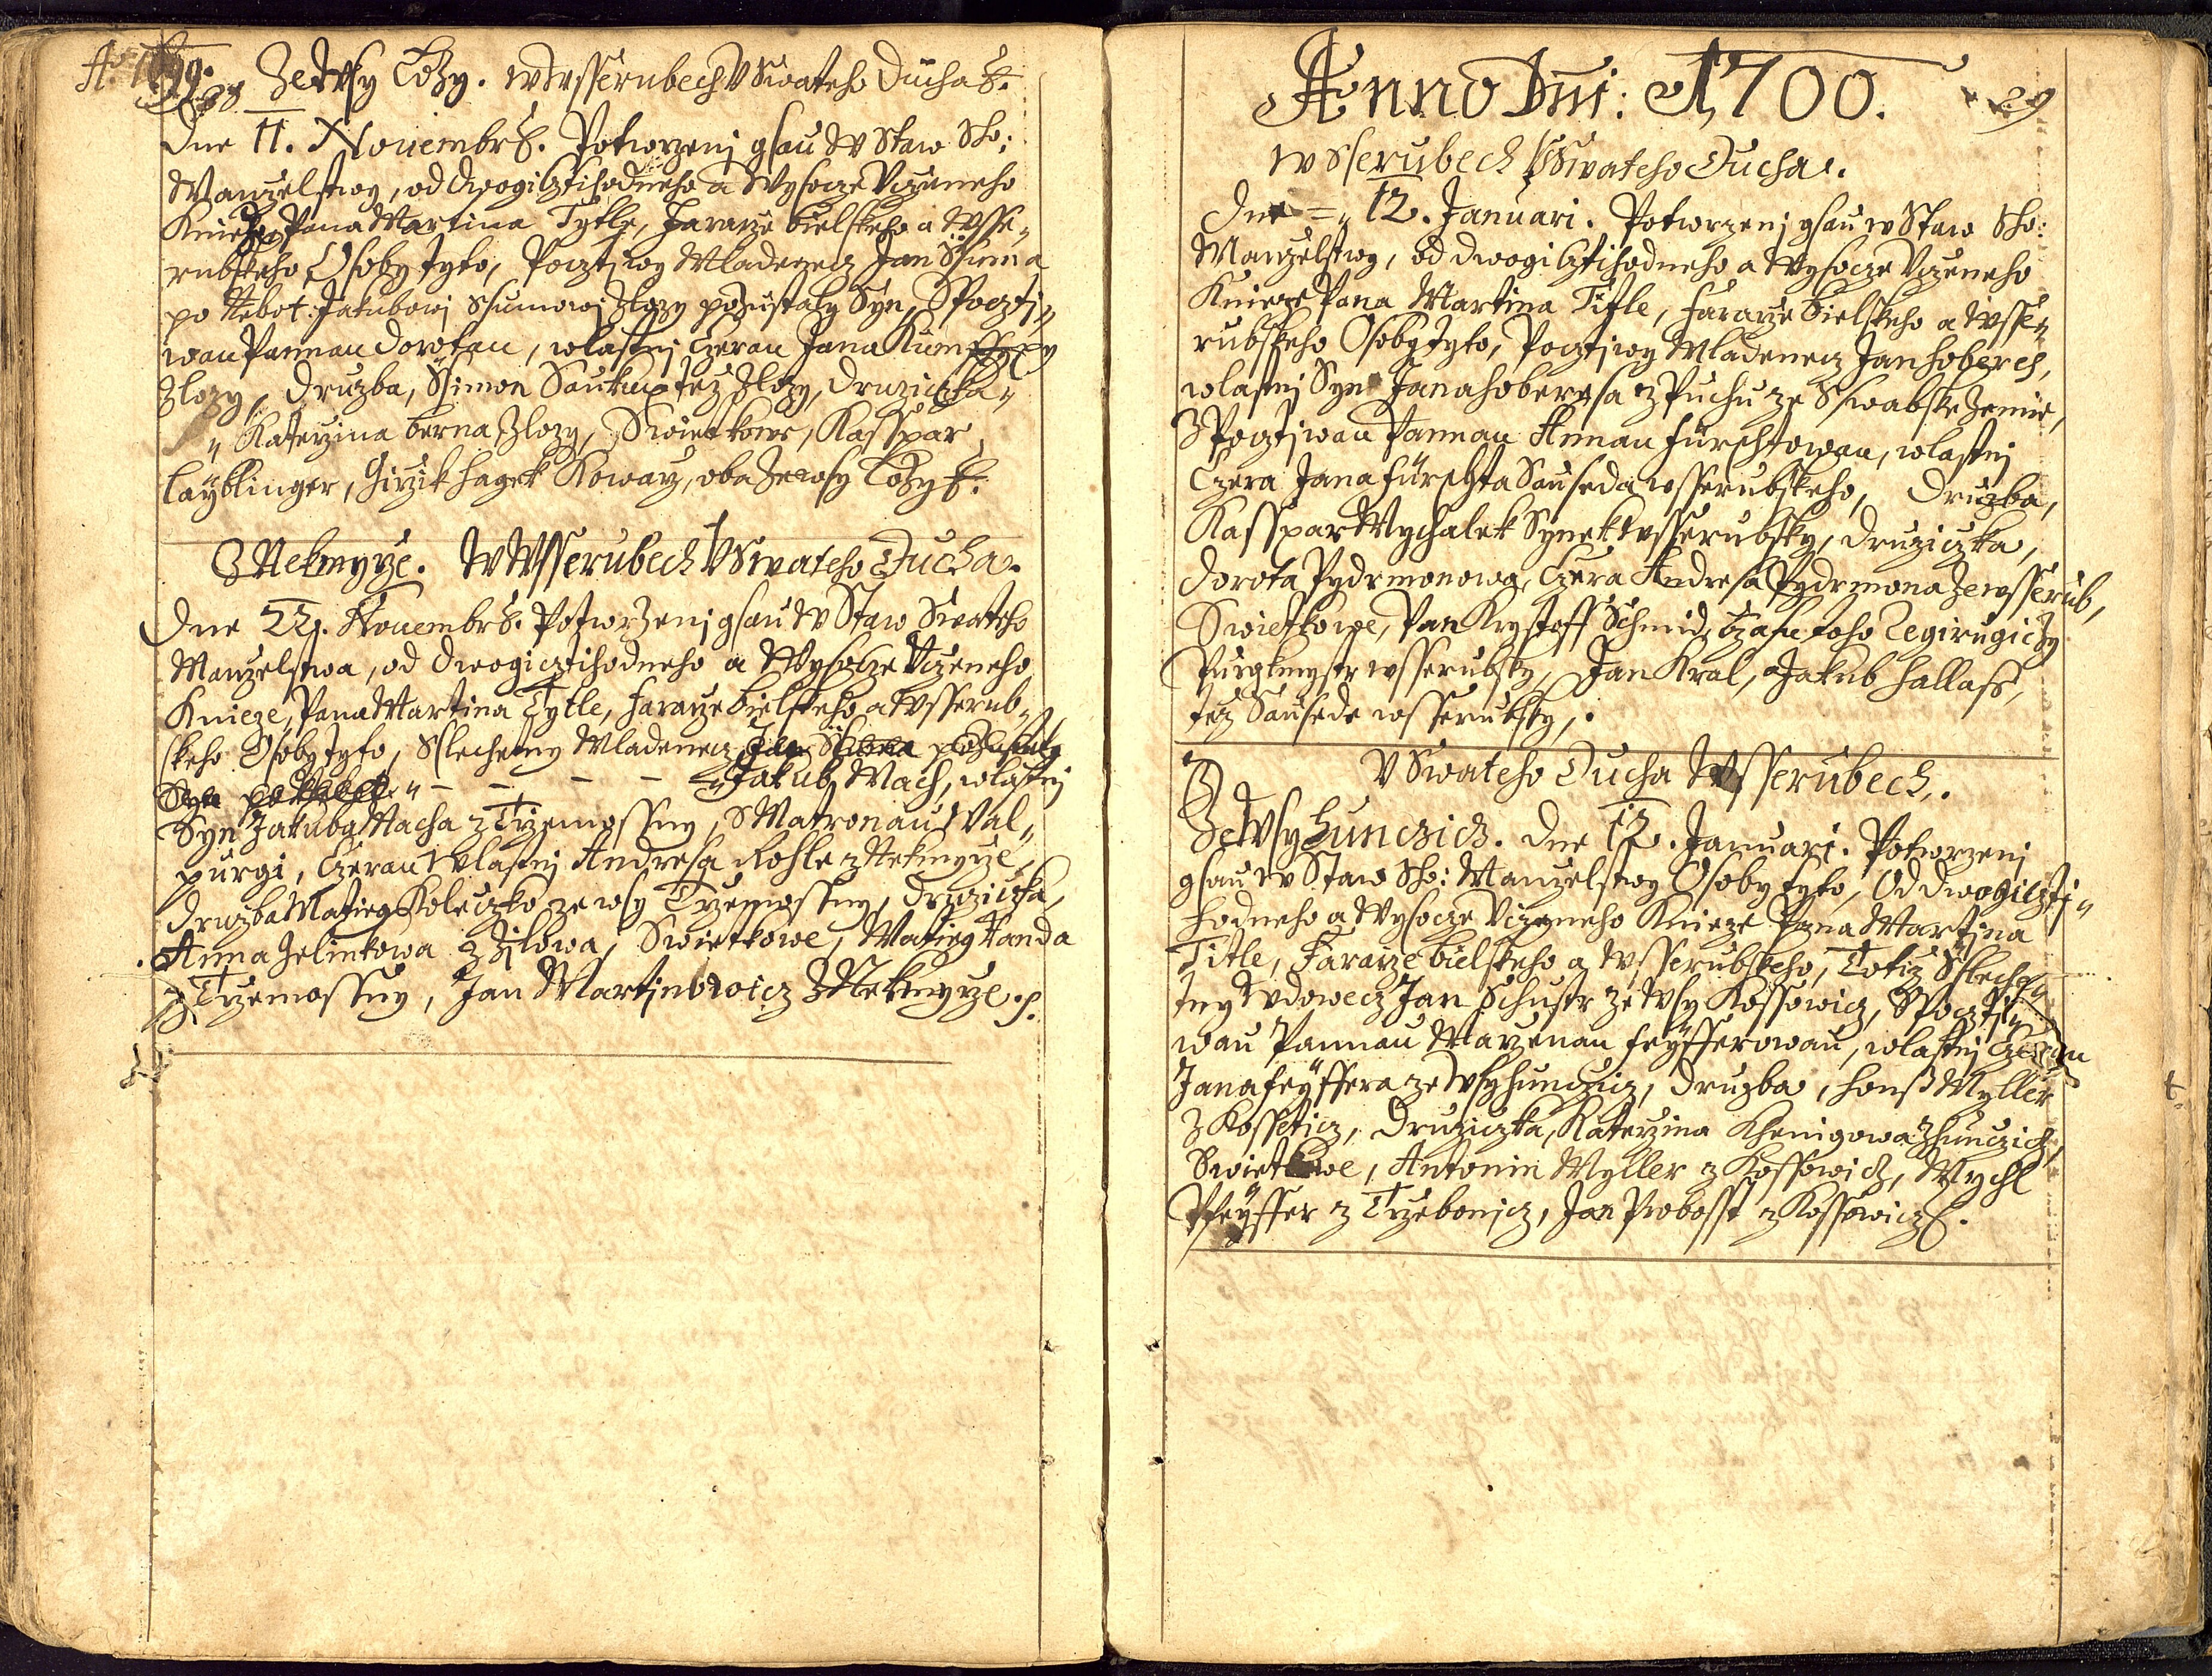 Ao 1699.
Ze Wsy Lozy. w Wsserubech V Swateho Ducha
Dne 11. Nouembr. Potwrzenj gsau W Staw Sho:
Manzelstwy, od dwogi Cztihodneho a Wysocze Vczeneho
Knieze Pana Martina Tytle, Fararze bielskeho a Wsse„
rubskeho Osoby tyto, Pocztiwy Mladenecz Jan Ssuma
po Nebot: Jakubowj Ssumowj Zlozy pozustaly Syn, S Pocztj„
wau Pannau Dorotau, wlastnj Czerau Jana
Zlozy, Druzba, Ssimon Saukup tez Zlozy, Druziczka„
„ Katerzina berna Zlozy, Swietkowe, Kasspar
Laÿblinger, Girzik Hagek Kowarz, oba Ze wsy Lozy
Z Nekmyrze. W Wsserubech V Swateho Ducha.
Dne 22. Nouembr. Potwrzenj gsau W Staw Swateho
Manzelstwa, od dwogi cztihodneho a Wysocze Vczeneho
Knieze, Pana Martina Tytle, fararze bielskeho a Wsserub„
skeho Osoby tyto, Sslechetny Mladenecz
„ - - - - „ Jakub Mach, wlastnj
Syn Jakuba Macha z Trzemossny, S Matronau Wal„
purgi, Czerau wlastnj Andresa Rohle z Nekmyrze,
Druzba Matieg Koleczko ze wsy Trzemossny, Druziczka,
Anna Jelinkowa z Zilowa, Swietkowe, Matieg Kanda
z Trzemossny, Jan Martinowicz Z Nekmyrze.
Anno Dni: 1700.
w Sserubech V Swateho Ducha.
Dne 12. Januari. Potwrzenj gsau w Staw Sho:
Manzelstwy, od dwogi Cztihodneho a Wysocze Vczeneho
Knieze Pana Martina Title, fararze bielskeho a Wsse„
rubskeho Osoby tyto, Pocztiwy Mladenecz Jan Hoberch,
wlastnj Syn Jana Hobercha z Puchu ze Sswabske Zemie,
S Pocztiwau Pannau Annau Fürschtowau, wlastnj
Czera Jana Fürschta Sauseda wsserubskeho, Druzba,
Kasspar Mychalek Synek Wsserubsky, Druziczka,
Dorota Pydrmonowa, Czera Andresa Pydrmona Ze wsserub,
Swietkowe, Pan Krystoff Schmid, Czasu toho Regirugiczy
Purgkmystr wsserubsky, Jan Kral, a Jakub Hallass,
tez Sausede wsserubsky,.
V Swateho Ducha Wsserubech.
Ze Wsy Hunczicz. Dne 12. Januari. Potwrzenj
gsau W Staw Sho: Manzelstwy Osoby tyto, Od dwogi Czti„
hodneho a Wysocze Vczeneho Knieze Pana Martina
Title, Fararze bielskeho a Wsserubskeho, Totiz Ssleche„
tny Wdowecz Jan Schustr ze Wsy Kossowicz, S Pocztj„
wau Pannau Marzenau Feÿfferowau, wlastnj Czerau
Jana Feÿffera ze Wsy Hunczicz, Druzba, Hanss Myller
Z Kossowicz, Druziczka, Katerzina Khenigowa Z Hunczicz,
Swietkowe, Antonin Myller z Kossowicz, Mychl
Pfeÿffer z Trzebonicz, Jan Probosst z Kossowicz.